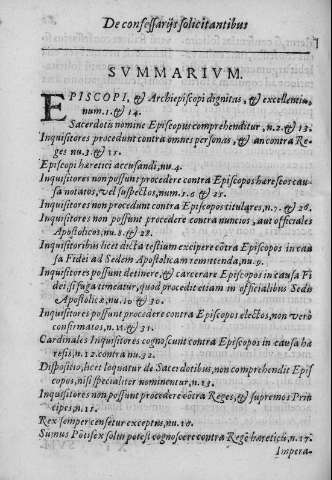 De confessarijs solicitantibus
SVMMARIVM.
EPISCOPI, & Archiepiscopi dignitas, & excellentia,
num.1. & 14.
Sacerdotis nomine Episcopus comprehenditur, n.2. & 13.
Inquisitores procedunt contra omnes personas, & an contra Re-
ges nu.3. & 15.
Episcopi hæretici accusandi, nu.4.
Inquisitores non possunt procedere contra Episcopos hæreseos cau-
sa notatos, vel suspectos, num.5.6 & 25.
Inquisitores non procedunt contra Episcopos titulares, n.7. & 26.
Inquisitores non possunt procedere contra nuncios, aut officiales
Apostolicos, nu.8. & 28.
Inquisitoribus licet dicta testium excipere cōtra Episcopos in cau
sa Fidei ad Sedem Apostolicam remittenda, nu.9.
Inquisitores possunt detinere, & carcerare Episcopos in causa Fi
dei, si fuga timeatur, quod procedit etiam in officialibus Sedis
Apostolicæ, nu.10. & 30.
Inquisitores possunt procedere contra Episcopos electos, non verò
confirmatos, n.11. & 31.
Cardinales Inquisitores cognoscunt contra Episcopos in causa hæ
resis, n.12. contra nu.32.
Dispositio, licet loquatur de Sacerdotibus, non comprehendit Epis
copos, nisi specialiter nominentur, n.13.
Inquisitores non possunt procedere cōtra Reges, & supremos Prin
cipes, n.15.
Rex semper censetur exceptus, nu.16.
Sūmus Pōtifex solus potest cognoscere contra Regē hæreticū, n.17.
Impera-